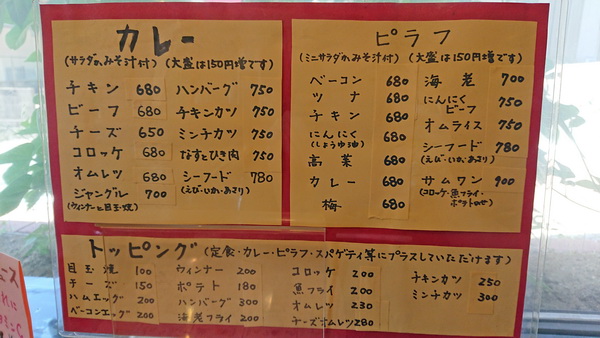 カレー
(サラダかみそ汁付)(大盛は150円増です)
チキン 680
ビーフ 680
チーズ 650
コロッケ 680
オムレツ 680
ジャングル 700
(ウィンナーと目玉焼)
ハンバーグ 750
チキンカツ 750
ミンチカツ 750
なすとひき肉 750
シーフード 780
(えび・いか・あさり)
ピラフ
(ミニサラダかみそ汁付)(大盛は150円増です)
ベーコン 680
ツナ 680
チキン 680
にんにく 680
(しょうゆ油)
高菜 680
カレー 680
梅 680
海老 700
にんにく
ビーフ 750
オムライス 750
シーフード 780
(えび・いか・あさり)
サムワン 900
(コロッケ・魚フライ・
ポテトのせ)
トッピング(定食・カレー・ピラフ・スパゲティ等にプラスしていただけます)
目玉焼 100
チーズ 150
ハムエッグ 200
ベーコンエッグ 200
ウィンナー 200
ポテト 180
ハンバーグ 300
海老フライ 200
コロッケ 200
魚フライ 200
オムレツ 230
チーズオムレツ 280
チキンカツ 250
ミンチカツ 300